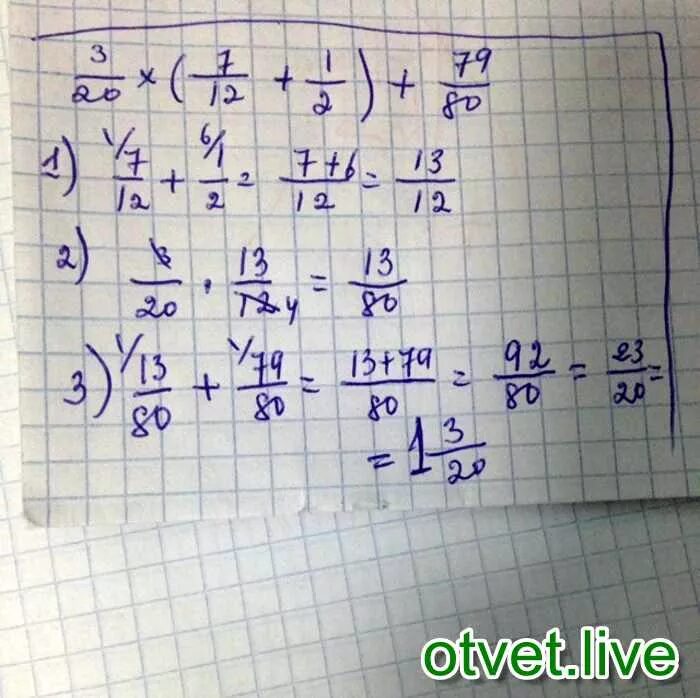 3/20 × (7/12 + 1/2) + 79/80
1) 1/ 7/12 + 6/ 1/2 = 7+6/12 = 13/12
2) 3/20 · 13/12 4 = 13/80
3) 1/ 13/80 + 1/ 79/80 = 13+79/80 = 92/80 = 23/20 =
= 1 3/20
otvet.live